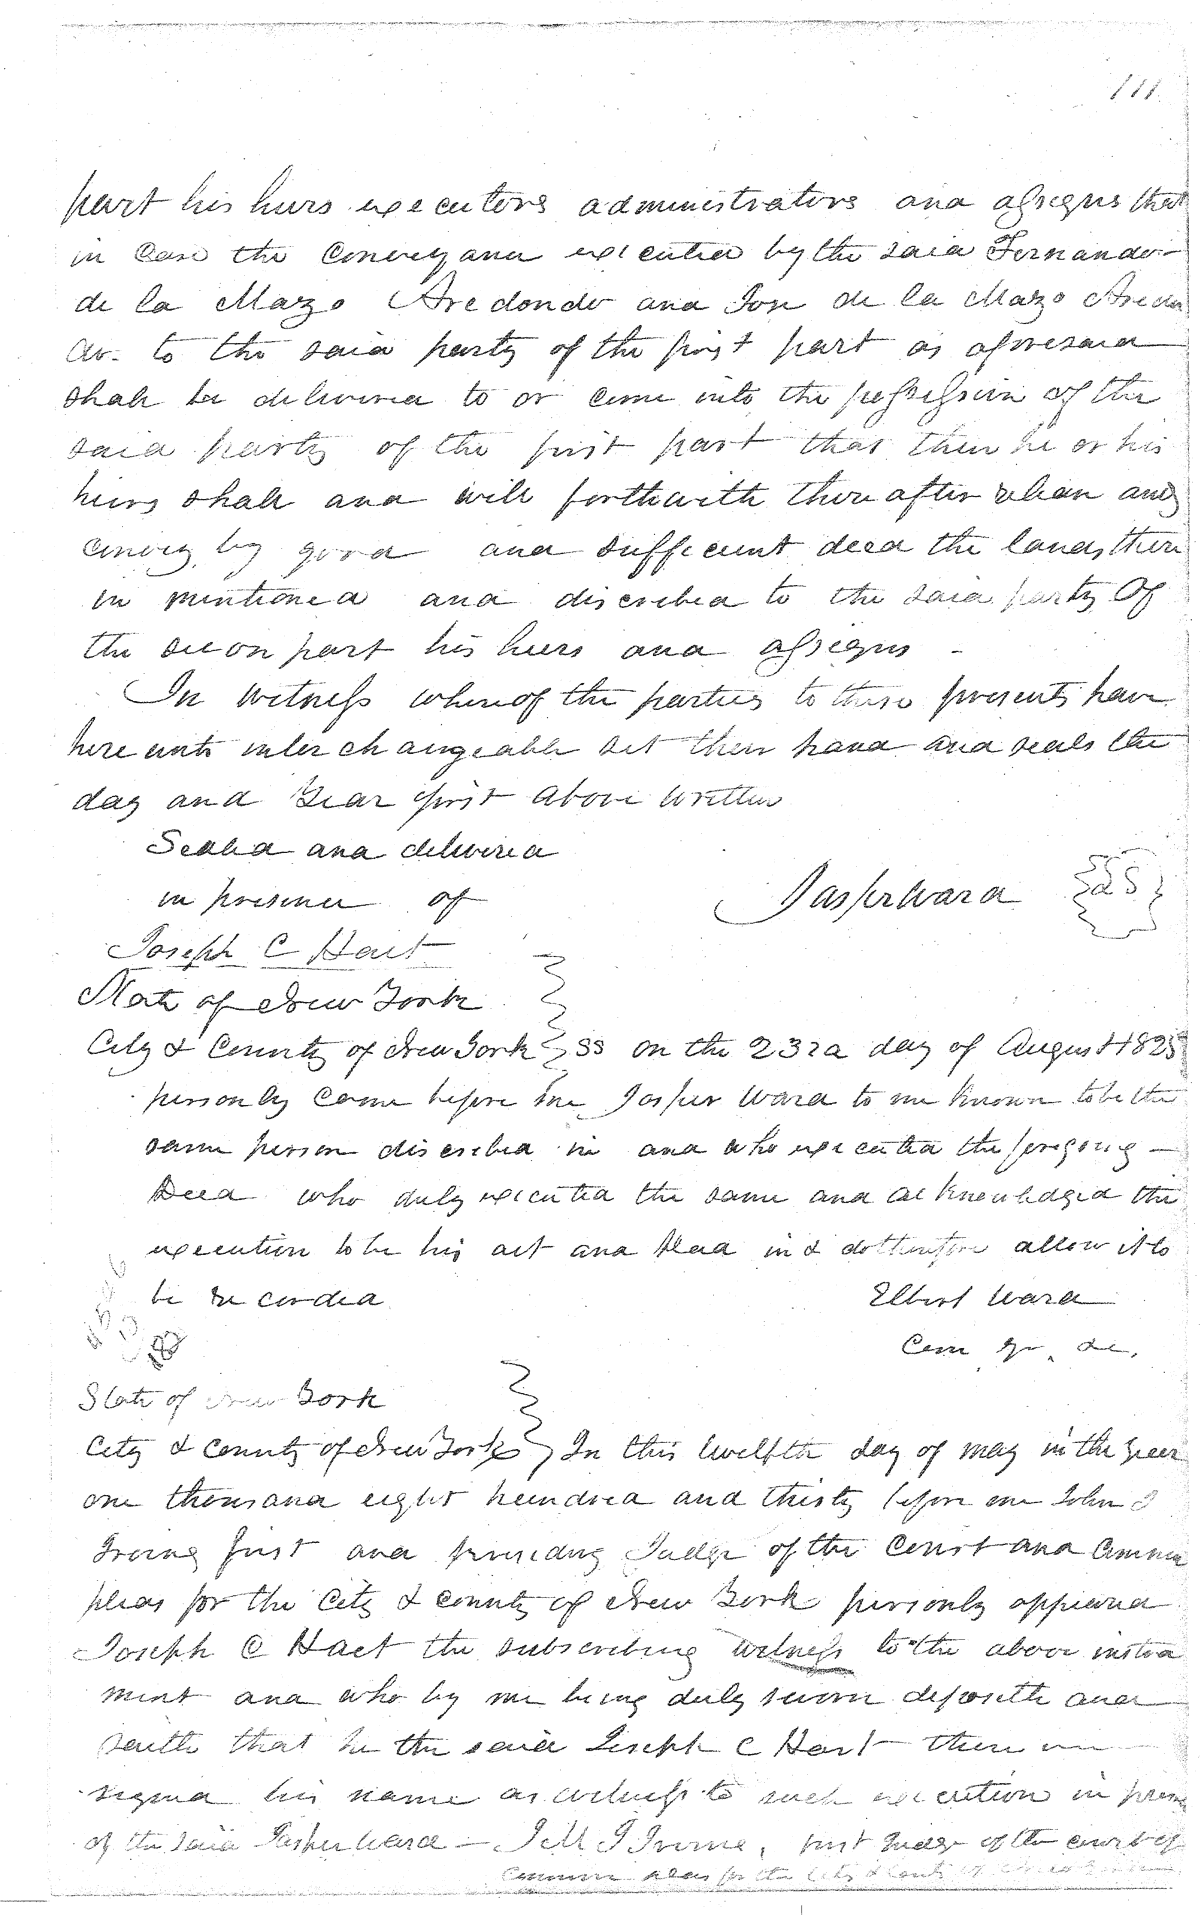 111.
part his heirs executors administrators and assigns that
in case the Conveyance executed by the said Fernando
de la Mazo Aredondo and Jose de la Mazo Aredon
do. to the said party of the first part as aforesaid
shall be delivered to or come into the possession of the
said party of the first part that then he or his
heirs shall and will forthwith thereafter release and
convey by good and sufficient deed the lands there
in mentioned and discribed to the said party Of
the secon part his heirs and assigns -
In witness whereof the parties to these presents have
here unto interchangeable set their hand and seals the
day and Year first above written
Sealed and delivered
in presence of
Jasper Ward
Joseph C Hart
State of New York
City & County of New York ss on the 23rd day of August 1825
personly came before me Jasper Ward to me known to be the
same person discribed in and who executed the foregoing
Deed who duly executed the same and acknowledged the
execution to be his act and Deed and I do therefore allow it to
be Recorded
Elbert Ward
Com
State of New York
City & County of New York In this twelfth day of may in the year
one thousand eight hundred and thirty before me John T
Irving first and presiding Judge of the Court and Common
pleas for the City & County of New York personly appeared
Joseph C Hart the subscribing witness to the above instru
ment and who by me being duly sworn deposeth and
saith that he the said Joseph C Hart there
signed his name as witness to such execution in presence
of the said Jasper Ward - Irving, first Judge of the court of
Common pleas for the City & County of New York